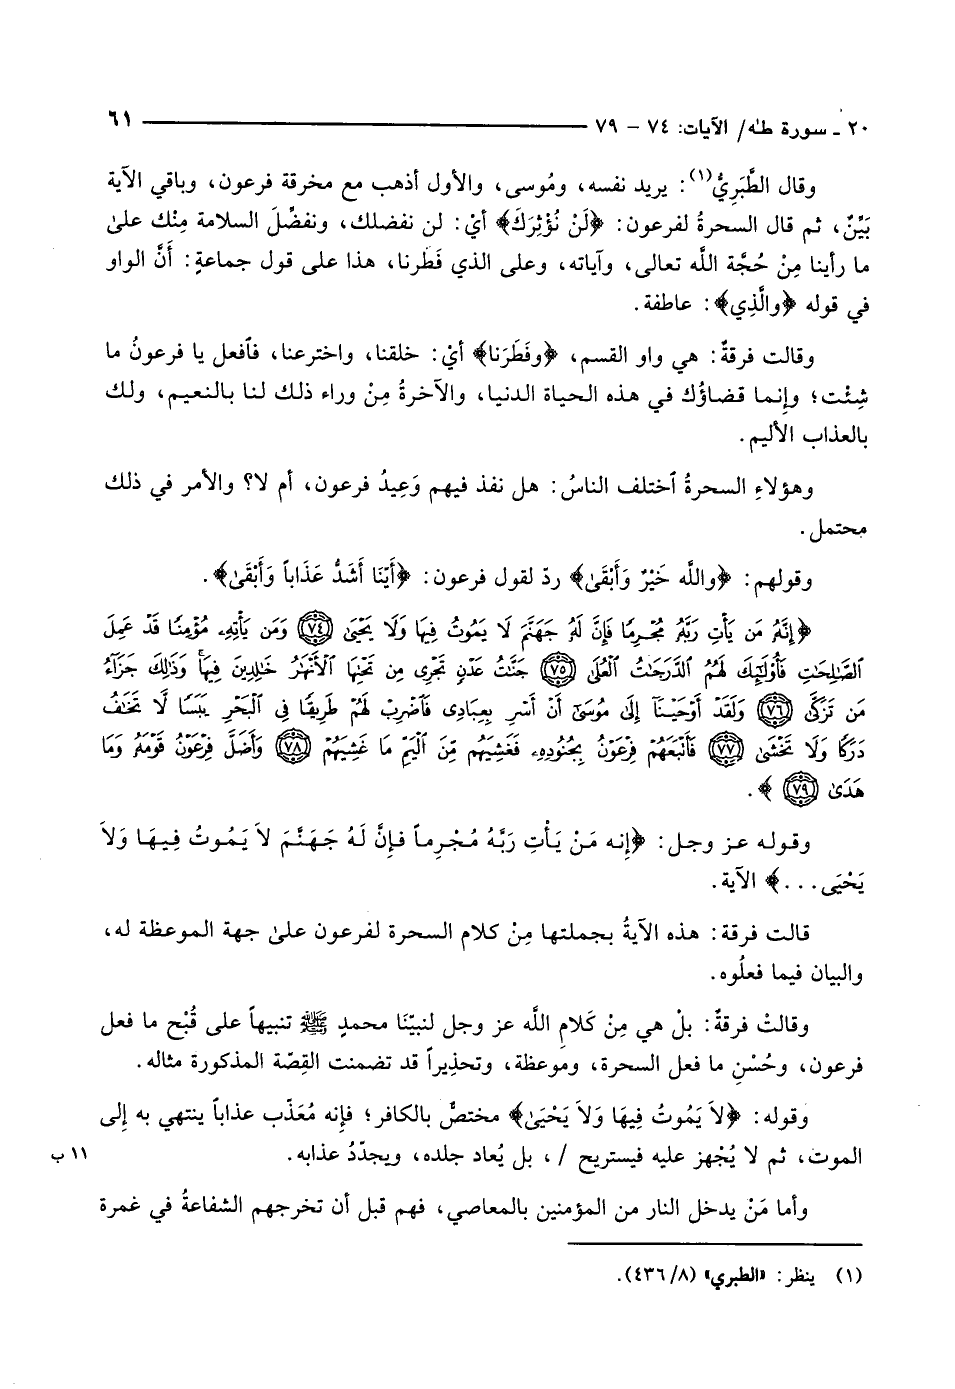 ٢٠ ـ سورة طـٰه/ الآيات: ٧٤ – ٧٩ ٦١
وقال الطَّبَرِيُّ(١): يريد نفسه، ومُوسى، والأول أذهب مع مخرقة فرعون، وباقي الآية
بَيِّنٌ، ثم قال السحرةُ لفرعون: ﴿لَنْ نُؤْثِرَكَ﴾ أيْ: لن نفضلك، ونفضِّلَ السلامة مِنْك علىٰ
ما رأينا مِنْ حُجَّة اللَّه تعالى، وآياته، وعلى الذي فَطَرنا، هذا على قول جماعةٍ: أَنَّ الواو
في قوله ﴿والَّذِي﴾: عاطفة.
وقالت فرقةٌ: هي واو القسم، ﴿وفَطَرَنا﴾ أيْ: خلقنا، واخترعنا، فاٱفعل يا فرعونُ ما
شِئْت؛ وإنما قضاؤُك في هذه الحياة الدنيا، والآخرةُ مِنْ وراء ذلك لنا بالنعيم، ولك
بالعذاب الأليم.
وهؤلاءِ السحرةُ ٱختلف الناسُ: هل نفذ فيهم وَعِيدُ فرعون، أم لا؟ والأمر في ذلك
محتمل.
وقولهم: ﴿واللَّه خَيْرٌ وَأَبْقَىٰ﴾ ردّ لقول فرعون: ﴿أَيُّنَا أَشَدُّ عَذَاباً وَأَبْقَىٰ﴾.
﴿إِنَّهُۥ مَن يَأْتِ رَبَّهُۥ مُجْرِمًا فَإِنَّ لَهُۥ جَهَنَّمَ لَا يَمُوتُ فِيهَا وَلَا يَحْيَىٰ ٧٤ وَمَن يَأْتِهِۦ مُؤْمِنًا قَدْ عَمِلَ
ٱلصَّـٰلِحَـٰتِ فَأُوْلَـٰٓئِكَ لَهُمُ ٱلدَّرَجَـٰتُ ٱلْعُلَىٰ ٧٥ جَنَّـٰتُ عَدْنٍ تَجْرِى مِن تَحْتِهَا ٱلْأَنْهَـٰرُ خَـٰلِدِينَ فِيهَا ۚ وَذَٰلِكَ جَزَآءُ
مَن تَزَكَّىٰ ٧٦ وَلَقَدْ أَوْحَيْنَآ إِلَىٰ مُوسَىٰٓ أَنْ أَسْرِ بِعِبَادِى فَٱضْرِبْ لَهُمْ طَرِيقًا فِى ٱلْبَحْرِ يَبَسًا لَّا تَخَـٰفُ
دَرَكًا وَلَا تَخْشَىٰ ٧٧ فَأَتْبَعَهُمْ فِرْعَوْنُ بِجُنُودِهِۦ فَغَشِيَهُم مِّنَ ٱلْيَمِّ مَا غَشِيَهُمْ ٧٨ وَأَضَلَّ فِرْعَوْنُ قَوْمَهُۥ وَمَا
هَدَىٰ ٧٩﴾.
وقوله عز وجل: ﴿إِنه مَنْ يَأْتِ رَبَّهُ مُجْرِماً فإِنَّ لَهُ جَهَنَّمَ لاَ يَمُوتُ فِيهَا وَلاَ
يَحْيَى...﴾ الآية.
قالت فرقة: هذه الآيةُ بجملتها مِنْ كلام السحرة لفرعون علىٰ جهة الموعظة له،
والبيان فيما فعلُوه.
وقالتْ فرقةٌ: بلْ هي مِنْ كَلامِ اللَّه عز وجل لنبيّنَا محمدٍ ﷺ تنبيهاً على قُبْح ما فعل
فرعون، وحُسْنِ ما فعل السحرة، وموعظة، وتحذِيراً قد تضمنت القِصّة المذكورة مثاله.
وقوله: ﴿لاَ يَمُوتُ فِيهَا وَلاَ يَحْيَىٰ﴾ مختصٌّ بالكافر؛ فإنه مُعَذّب عذاباً ينتهي به إلى
الموت، ثم لا يُجْهز عليه فيستريح /، بل يُعاد جلده، ويجدّدُ عذابه. ١١ ب
وأما مَنْ يدخل النار من المؤمنين بالمعاصي، فهم قبل أن تخرجهم الشفاعةُ في غمرة
(١) ينظر: «الطبري» (٨/ ٤٣٦).